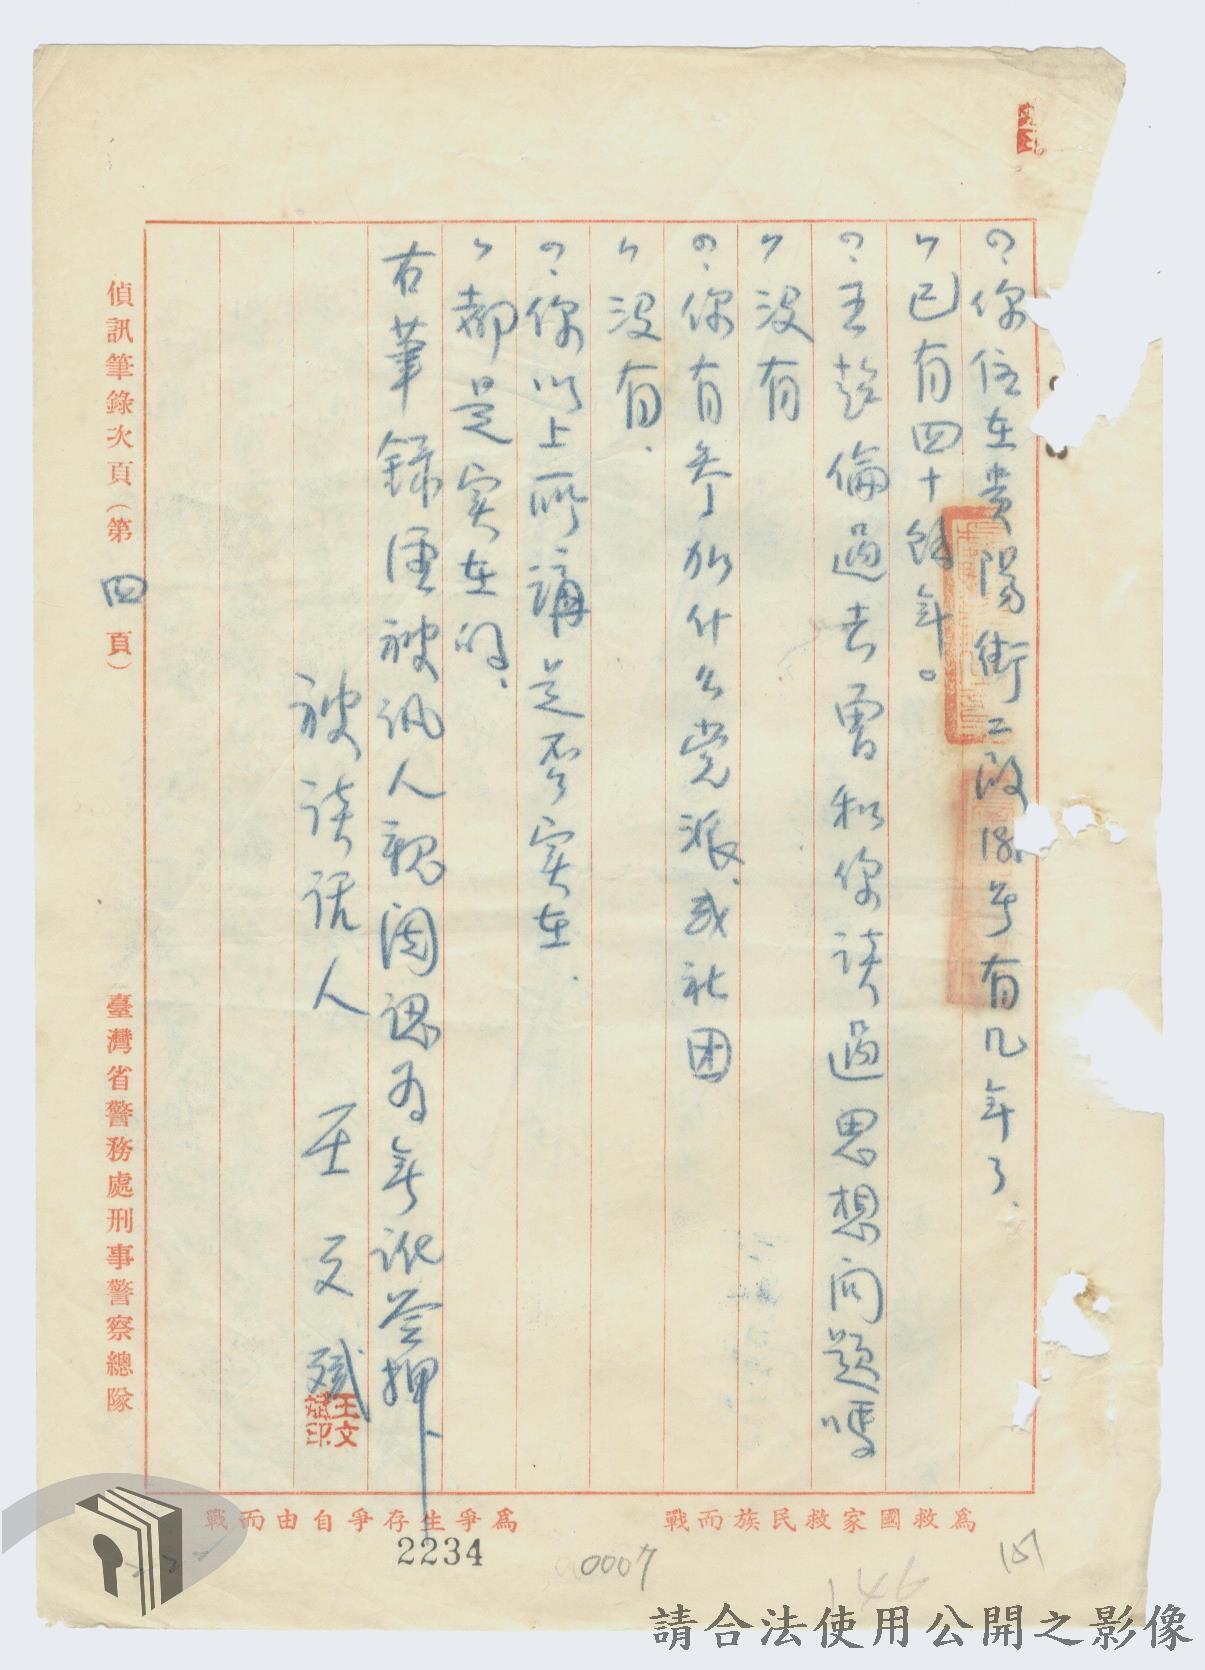 問、你住在貴陽街二段18號有几年了、
答、已有四十餘年。
問、王彭倫過去曾和你談過思想问題嗎
答、没有
問、你有参加什么党派、或社团
答、没有、
問、你以上所講是否实在、
答、都是实在的、
右筆錄经被訊人親閱認为無訛签押、
被談话人 王文斌
王文斌印
偵訊筆錄次頁（第四頁）
臺灣省警務處刑事警察總隊
爲救國家救民族而戰
爲爭生存爭自由而戰
2234
0007
146
151
請合法使用公開之影像